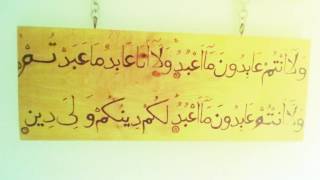 وَلَا أَنْتُمْ عَابِدُونَ مَا أَعْبُدُ وَلَا أَنَا عَابِدٌ مَا عَبَدْتُمْ
وَلَا أَنْتُمْ عَابِدُونَ مَا أَعْبُدُ لَكُمْ دِينُكُمْ وَلِىَ دِينِ